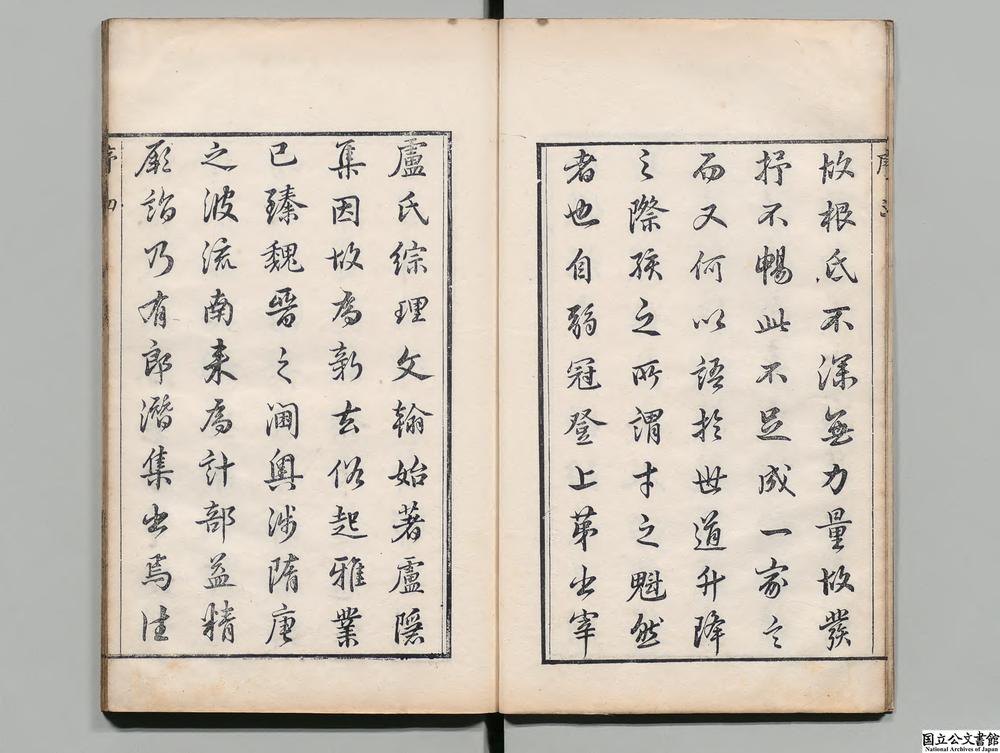 故根氐不深無力量故發
抒不暢此不足成一家言
而又何以語於世道升降
之際羨之所謂才之魁然
者也自弱冠登上第出宰
盧氏綜理文翰始著盧隱
集因故為新去俗起雅業
已臻魏晉之閫奧涉隋唐
之波流南来為計部益精
厥詣乃有郎潛集出焉往
序三
序四
国立公文書館
National Archives of Japan